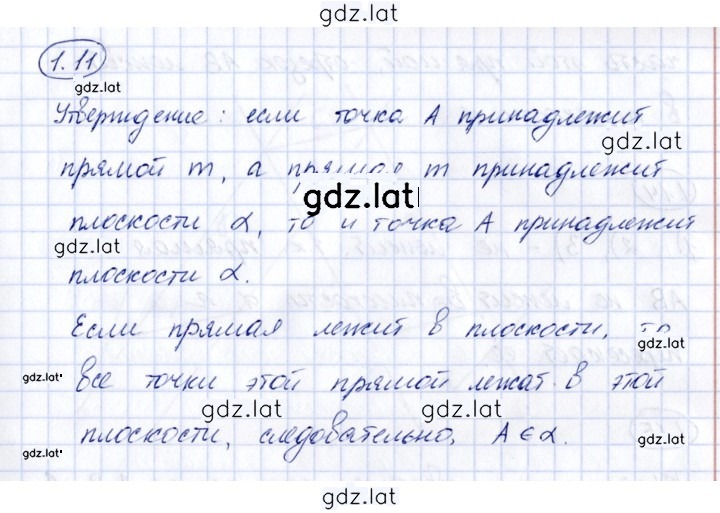 gdz.lat
1.11
gdz.lat
Утверждение: если точка A принадлежит
прямой m, а прямая m принадлежит
gdz.lat
плоскости α, то и точка A принадлежит
gdz.lat
плоскости α.
Если прямая лежит в плоскости, то
gdz.lat
gdz.lat
все точки этой прямой лежат в этой
gdz.lat gdz.lat
плоскости, следовательно, A ∈ α.
gdz.lat gdz.lat
gdz.lat